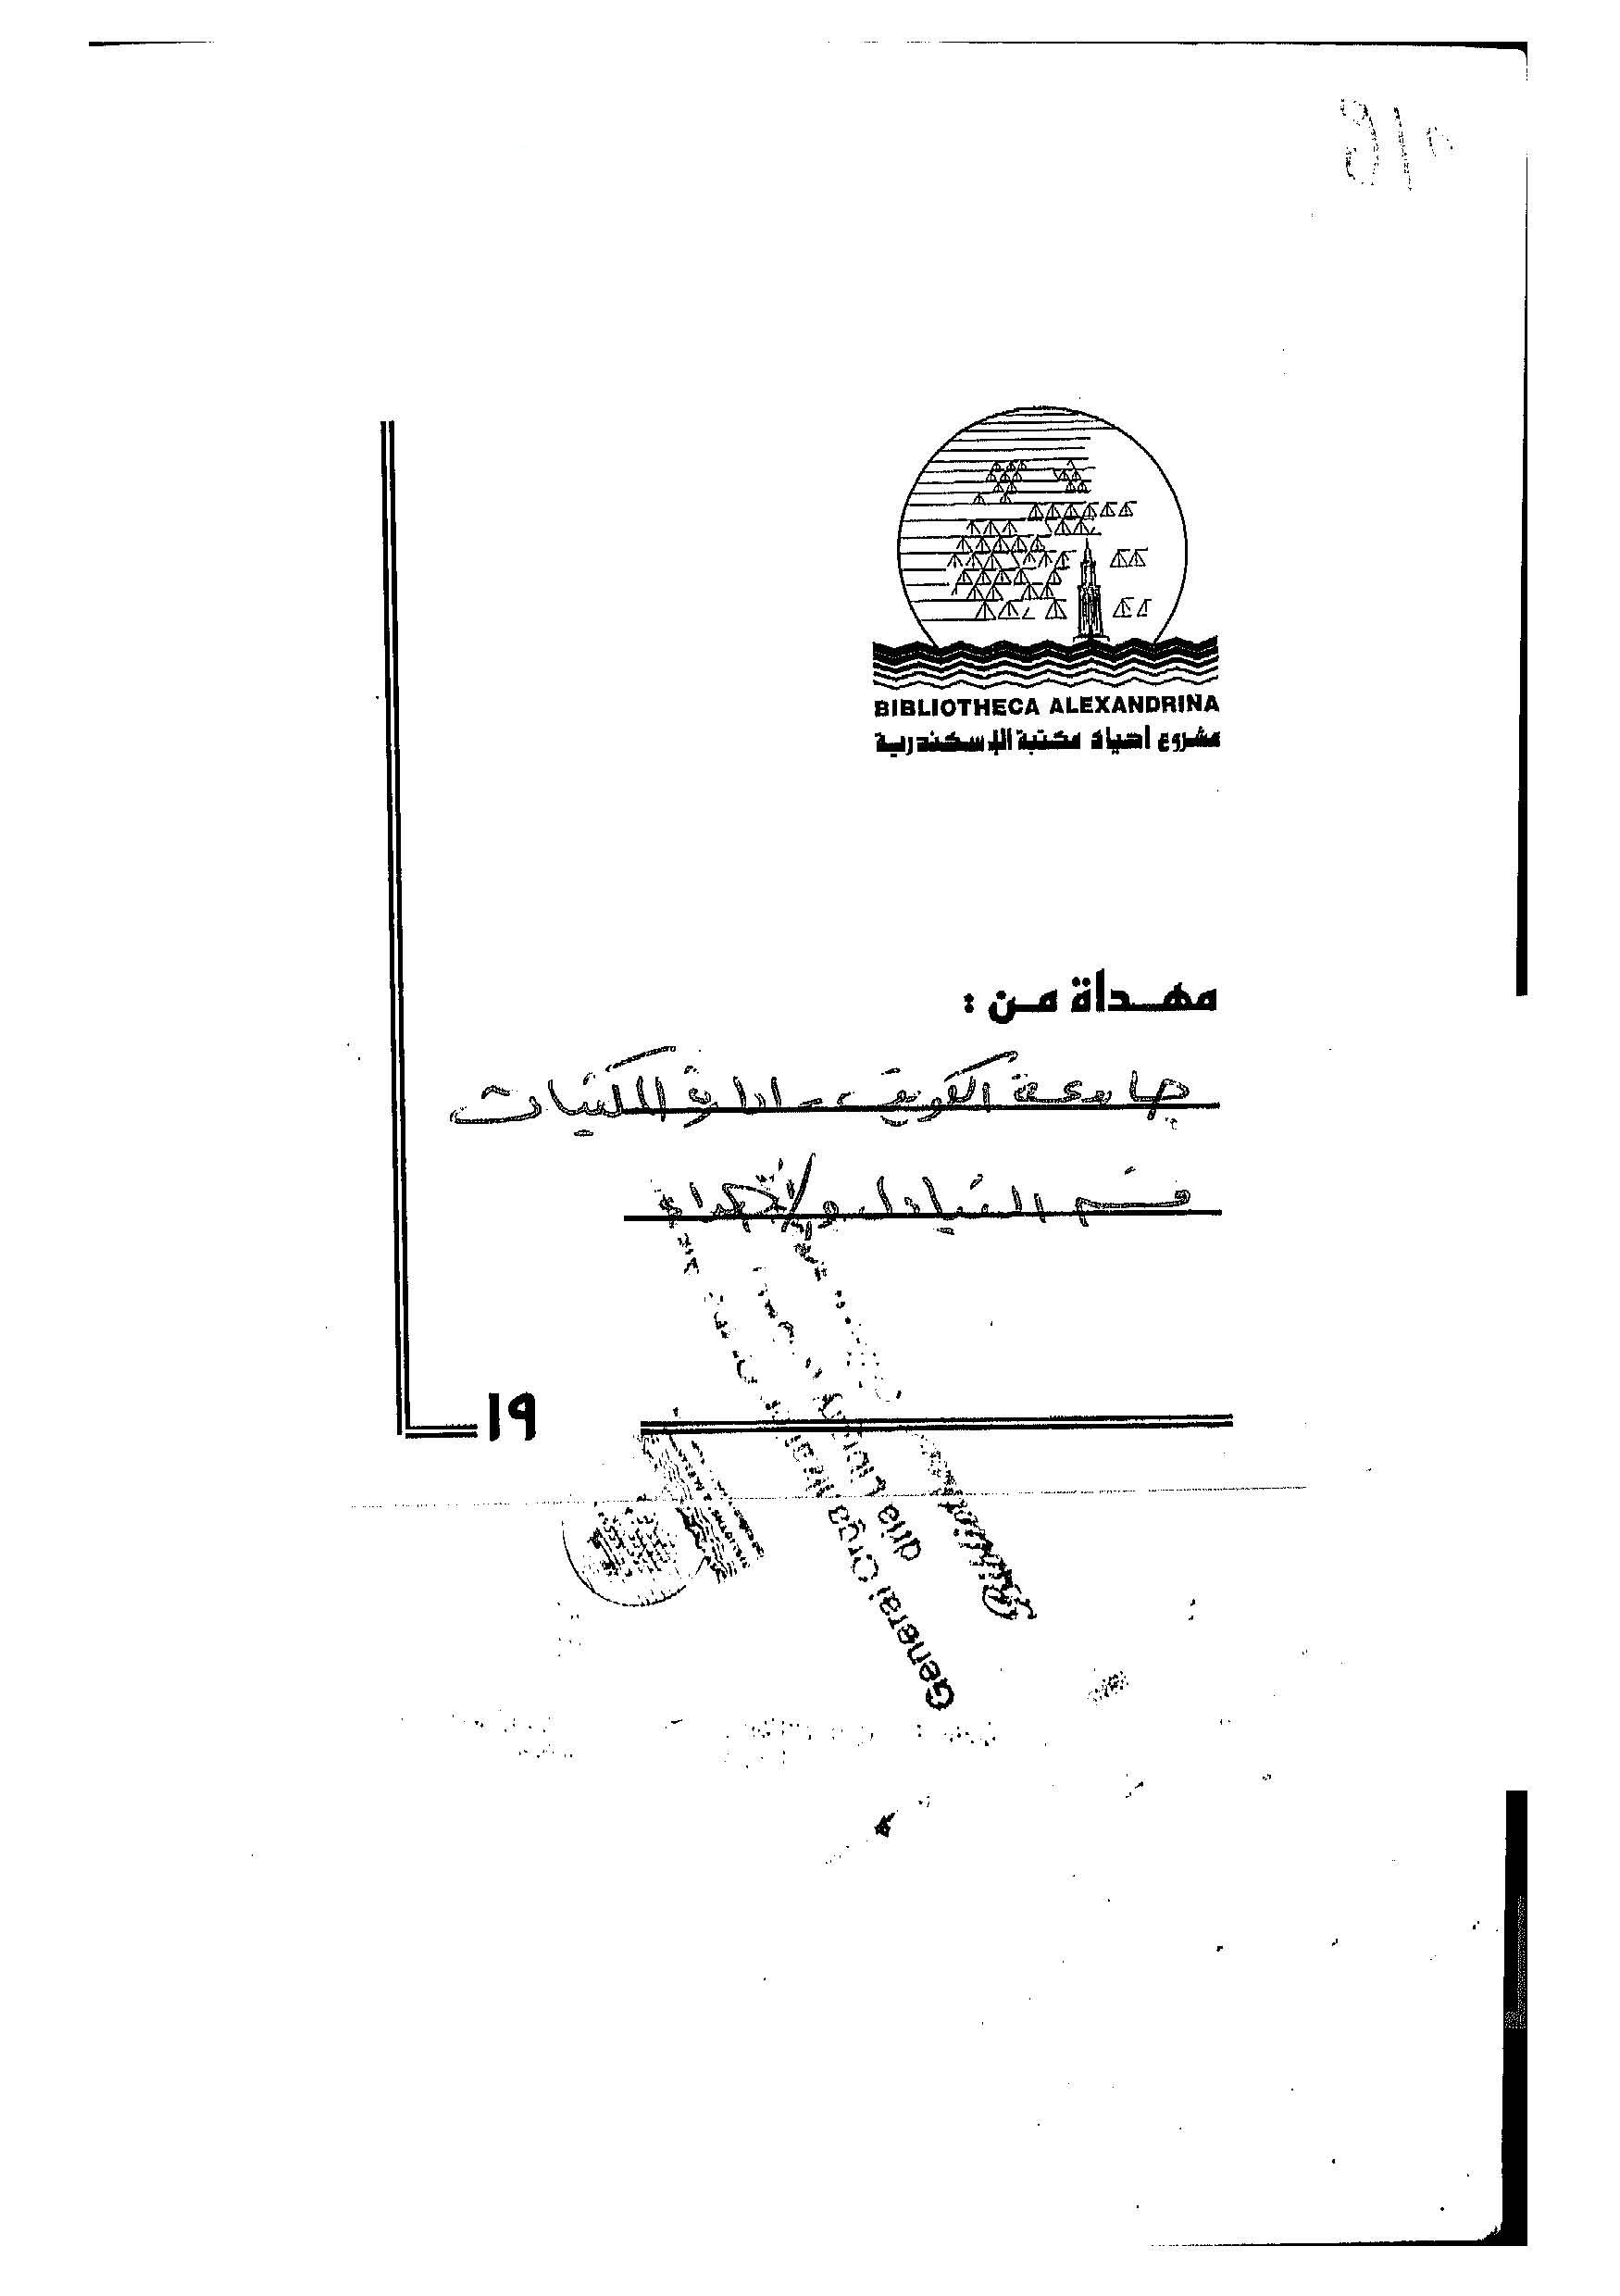 BIBLIOTHECA ALEXANDRINA
مشروع احياء مكتبة الإسكندرية
مهداة من :
جامعة الكويت - ادارة المكتبات
قسم التبادل والإهداء
١٩
General Orga